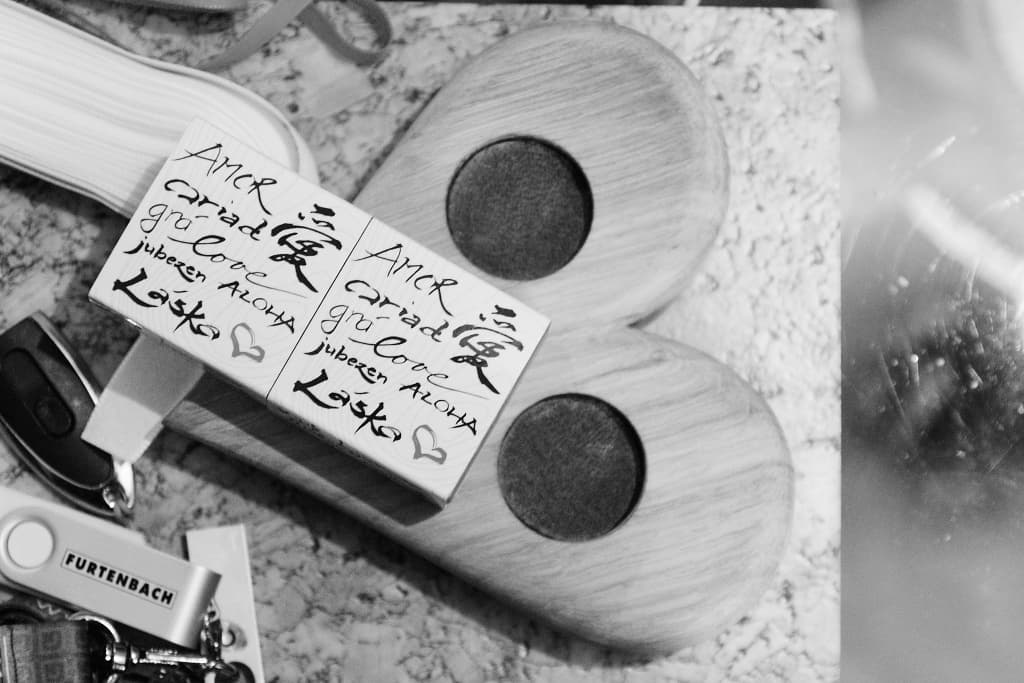 AMOR
cariad 愛
grá love
jubezen ALOHA
Láska
AMOR
cariad 愛
grá love
jubezen ALOHA
Láska
FURTENBACH